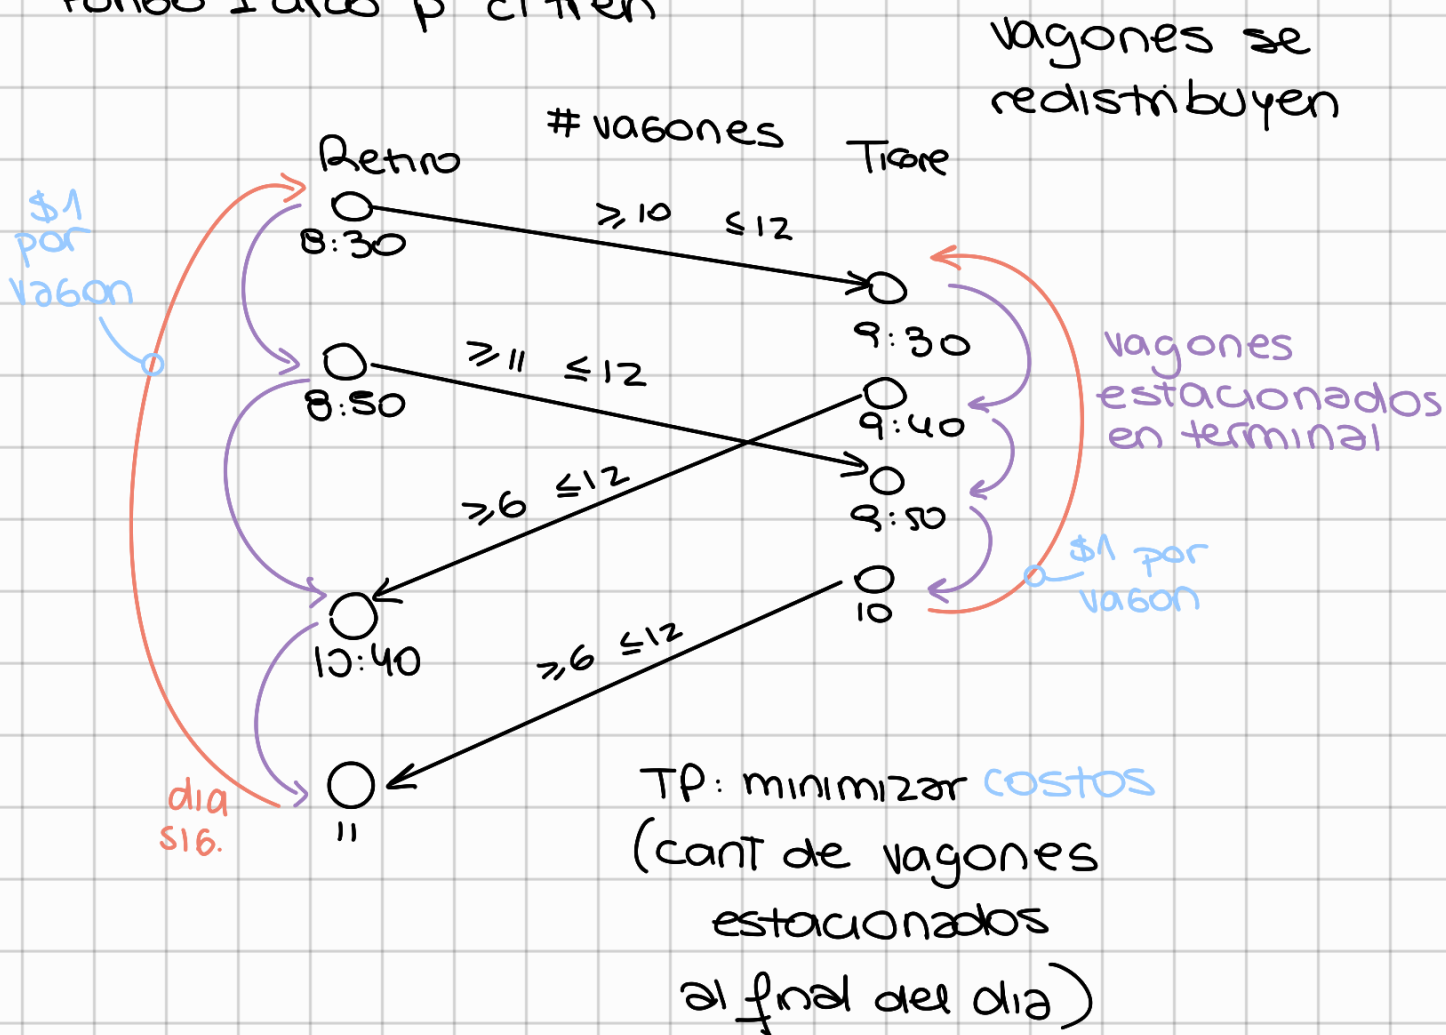 vagones se
redistribuyen
# vagones
Retiro
Tigre
$1
por
vagon
≥10 ≤12
8:30
9:30
≥11 ≤12
8:50
9:40
vagones
estacionados
en terminal
≥6 ≤12
9:50
$1 por
vagon
10
10:40
≥6 ≤12
dia
sig.
11
TP: minimizar costos
(cant de vagones
estacionados
al final del dia)